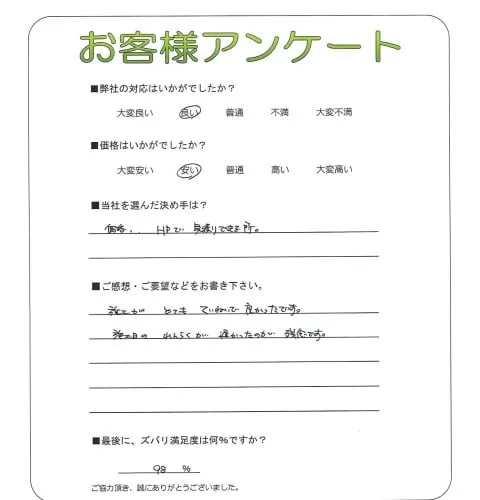 お客様アンケート
■弊社の対応はいかがでしたか？
大変良い 良い 普通 不満 大変不満
■価格はいかがでしたか？
大変安い 安い 普通 高い 大変高い
■当社を選んだ決め手は？
価格、HPで見積りできる所。
■ご感想・ご要望などをお書き下さい。
施工がとてもていねいで良かったです。
施工日のれんらくが遅かったのが残念です。
■最後に、ズバリ満足度は何%ですか？
98 %
ご協力頂き、誠にありがとうございました。